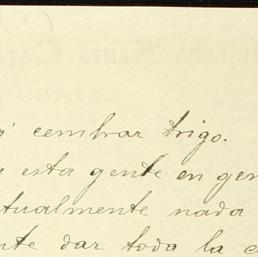 cembrar trigo.
esta gente en gen
tualmente nada
nte dar toda la c